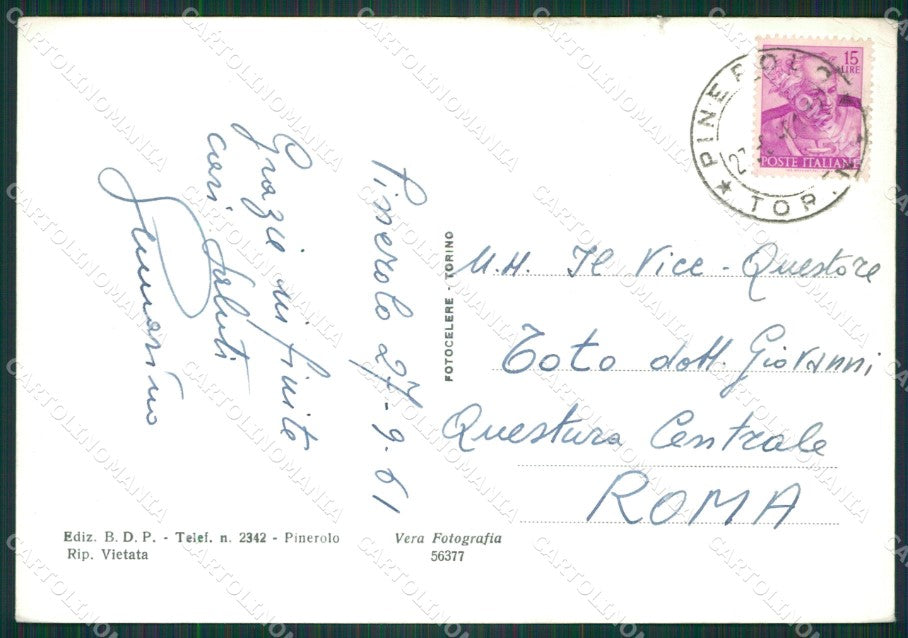 Pinerolo 27-9-61
Grazie infinite
cari saluti
15
LIRE
POSTE ITALIANE
PINEROLO
TOR
M.M. Il Vice-Questore
Toto dott. Giovanni
Questura Centrale
ROMA
FOTOCELERE - TORINO
Ediz. B. D. P. - Telef. n. 2342 - Pinerolo
Rip. Vietata
Vera Fotografia
56377
CARTOLINOMANIA